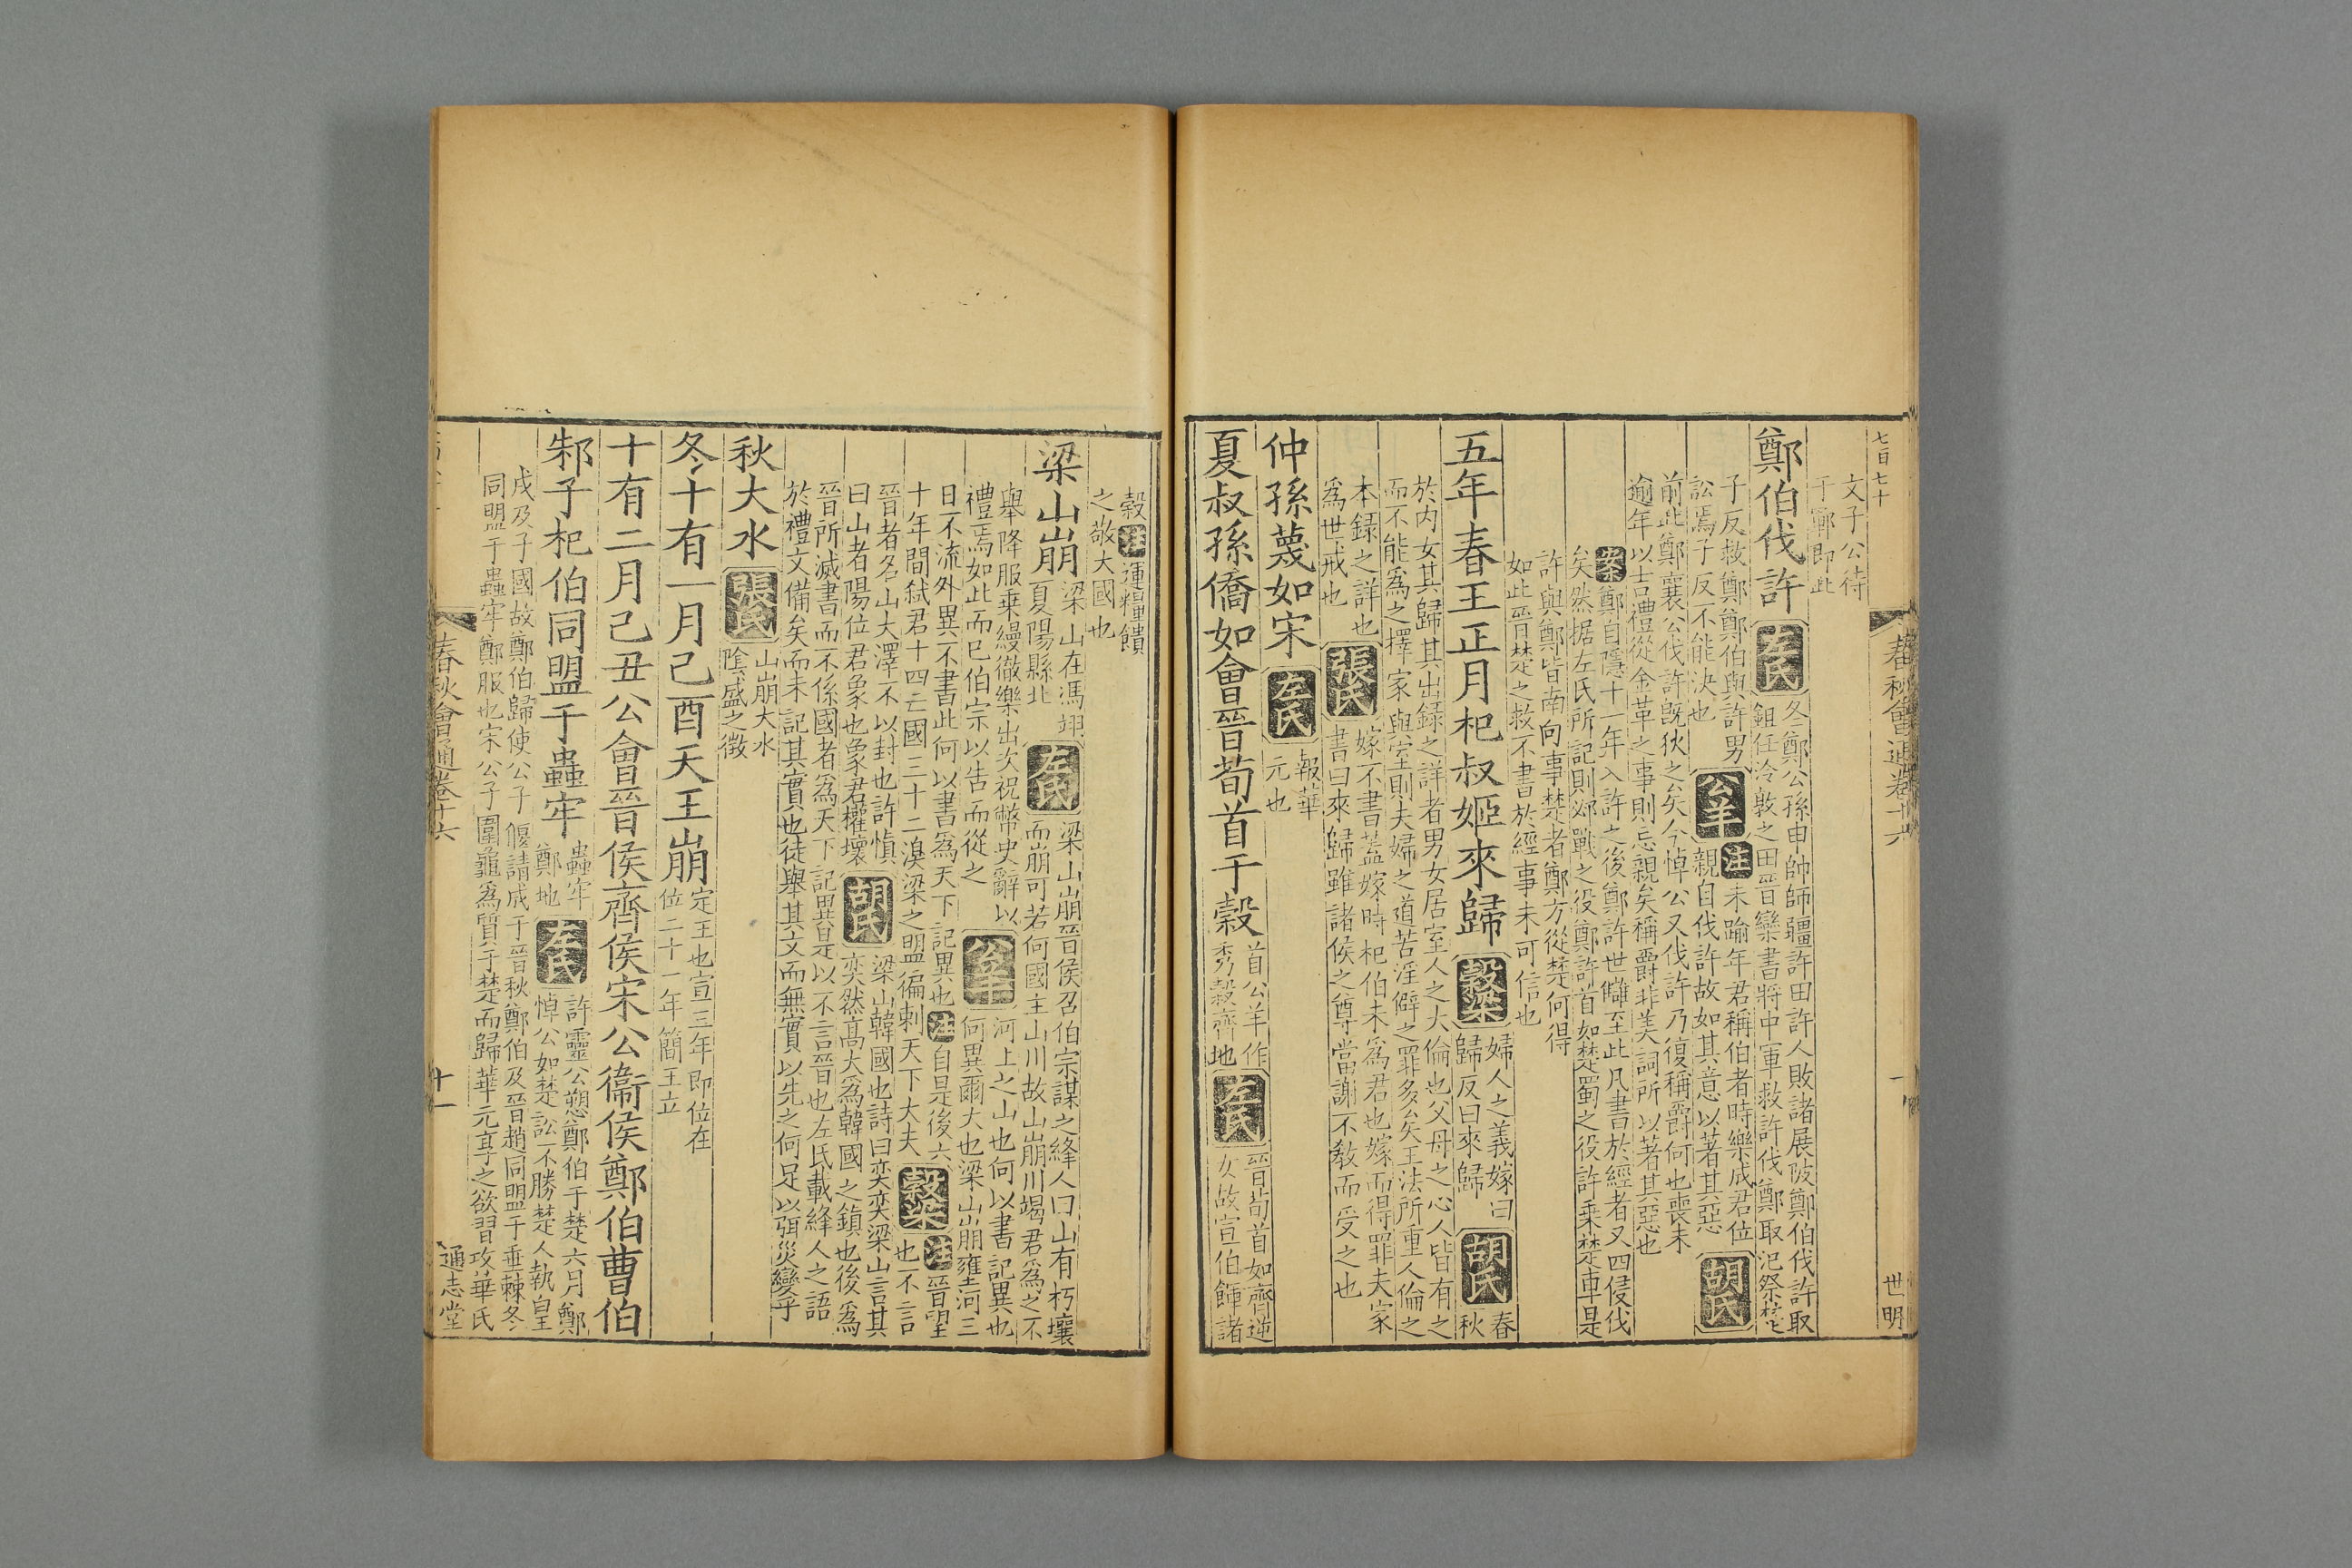 七百七十
春秋會通卷十六
世明
文子公待
于鄆即此
鄭伯伐許 左氏 冬鄭公孫申帥師疆許田許人敗諸展陂鄭伯伐許取
鉏任泠敦之田晉欒書將中軍救許伐鄭取汜祭楚
子反救鄭鄭伯與許男
訟焉子反不能決也
公羊 注 未踰年君稱伯者時樂成君位
親自伐許故如其意以著其惡
胡氏
前此鄭襄公伐許旣狄之矣今悼公又伐許乃復稱爵何也喪未
逾年以吉禮從金革之事則忘親矣稱爵非美詞所以著其惡也
案 鄭自隱十一年入許之後鄭許世讎至此凡書於經者又四侵伐
矣然据左氏所記則邲戰之役鄭許首如楚蜀之役許乘楚車是
許與鄭皆南向事楚者鄭方從楚何得
如此晉楚之救不書於經事未可信也
五年春王正月杞叔姬來歸 穀梁 婦人之義嫁曰
歸反曰來歸
胡氏 春
秋
於內女其歸其出録之詳者男女居室人之大倫也父母之心人皆有之
而不能爲之擇家與室則夫婦之道苦淫僻之罪多矣王法所重人倫之
本録之詳也
爲世戒也
張氏 嫁不書葢嫁時杞伯未爲君也嫁而得罪夫家
書曰來歸雖諸侯之尊當謝不敎而受之也
仲孫蔑如宋 左氏 報華
元也
夏叔孫僑如會晉荀首于穀 首公羊作
秀穀齊地
左氏 晉荀首如齊逆
女故宣伯餫諸
穀 注 運糧饋
之敬大國也
梁山崩 梁山在馮翊
夏陽縣北
左氏 梁山崩晉侯召伯宗謀之絳人曰山有朽壤
而崩可若何國主山川故山崩川竭君爲之不
舉降服乘縵徹樂出次祝幣史辭以
禮焉如此而已伯宗以告而從之
公羊 河上之山也何以書記異也
何異爾大也梁山崩雍河三
日不流外異不書此何以書爲天下記異也 注 自是後六
十年間弑君十四亡國三十二溴梁之盟徧刺天下大夫
穀梁 注 晉望
也不言
晉者名山大澤不以封也許愼
曰山者陽位君象也象君權壞
胡氏 梁山韓國也詩曰奕奕梁山言其
奕然高大爲韓國之鎮也後爲
晉所滅書而不係國者爲天下記異是以不言晉也左氏載絳人之語
於禮文備矣而未記其實也徒舉其文而無實以先之何足以弭災變乎
秋大水 張氏 山崩大水
陰盛之徵
冬十有一月己酉天王崩 定王也宣三年即位在
位二十一年簡王立
十有二月己丑公會晉侯齊侯宋公衞侯鄭伯曹伯
邾子杞伯同盟于蟲牢 蟲牢
鄭地
左氏 許靈公愬鄭伯于楚六月鄭
悼公如楚訟不勝楚人執皇
戌及子國故鄭伯歸使公子偃請成于晉秋鄭伯及晉趙同盟于垂棘冬
同盟于蟲牢鄭服也宋公子圍龜爲質于楚而歸華元享之欲習攻華氏
春秋會通卷十六
十一
通志堂